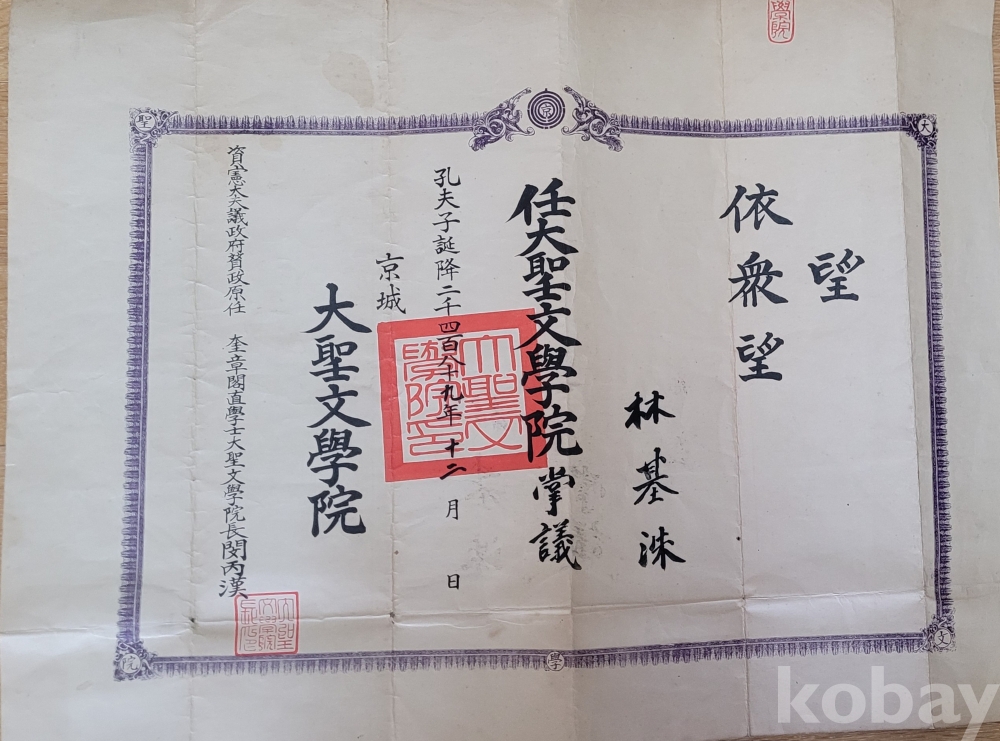 望
依衆望
林基洙
任大聖文學院掌議
孔夫子誕降二千四百八十九年十二月 日
京城
大聖文學院
資憲大夫議政府贊政原任 奎章閣直學士大聖文學院長閔丙漢
大
聖
文
學
院
京
學院
大聖文學院印
kobay